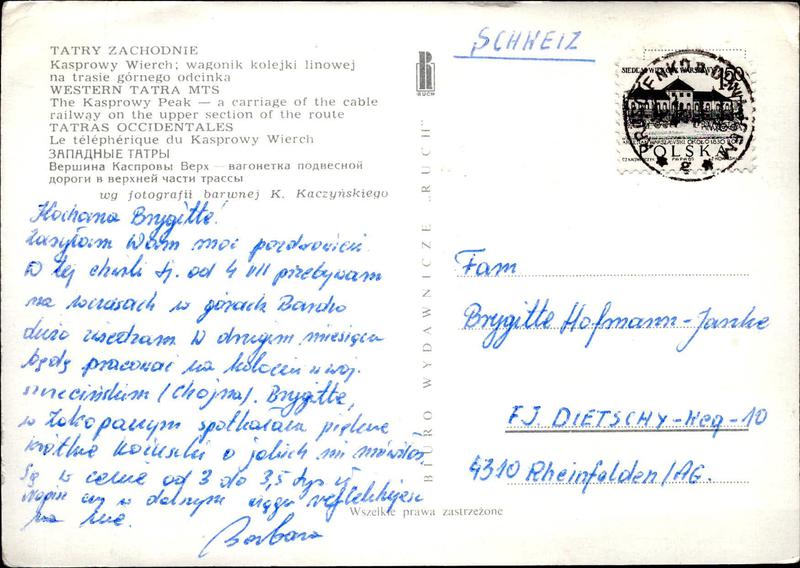 TATRY ZACHODNIE
Kasprowy Wierch; wagonik kolejki linowej
na trasie górnego odcinka
WESTERN TATRA MTS
The Kasprowy Peak — a carriage of the cable
railway on the upper section of the route
TATRAS OCCIDENTALES
Le téléphérique du Kasprowy Wierch
ЗАПАДНЫЕ ТАТРЫ
Вершина Каспровы Верх — вагонетка подвесной
дороги в верхней части трассы
wg fotografii barwnej K. Kaczyńskiego
Kochana Brygitte!
Zasyłam Wam moc pozdrowień
W tej chwili tj. od 4 VII przebywam
na wczasach w górach Bardzo
dużo zwiedzam W drugim miesiącu
będę pracować na kolonii woj.
szczecińskim (Chojna). Brygitte,
w Zakopanym spotkałam piękne
krótkie kożuszki o jakich mi mówiłaś
Są w cenie od 3 do 3,5 tys zł
Napisz czy w dalszym ciągu reflektujesz
na nie.
Barbara
RUCH
BIURO WYDAWNICZE „RUCH"
Wszelkie prawa zastrzeżone
SCHWEIZ
50
POLSKA
Fam
Brygitte Hofmann-Janke
F.J. DIETSCHY-Weg-10
4310 Rheinfelden/AG.